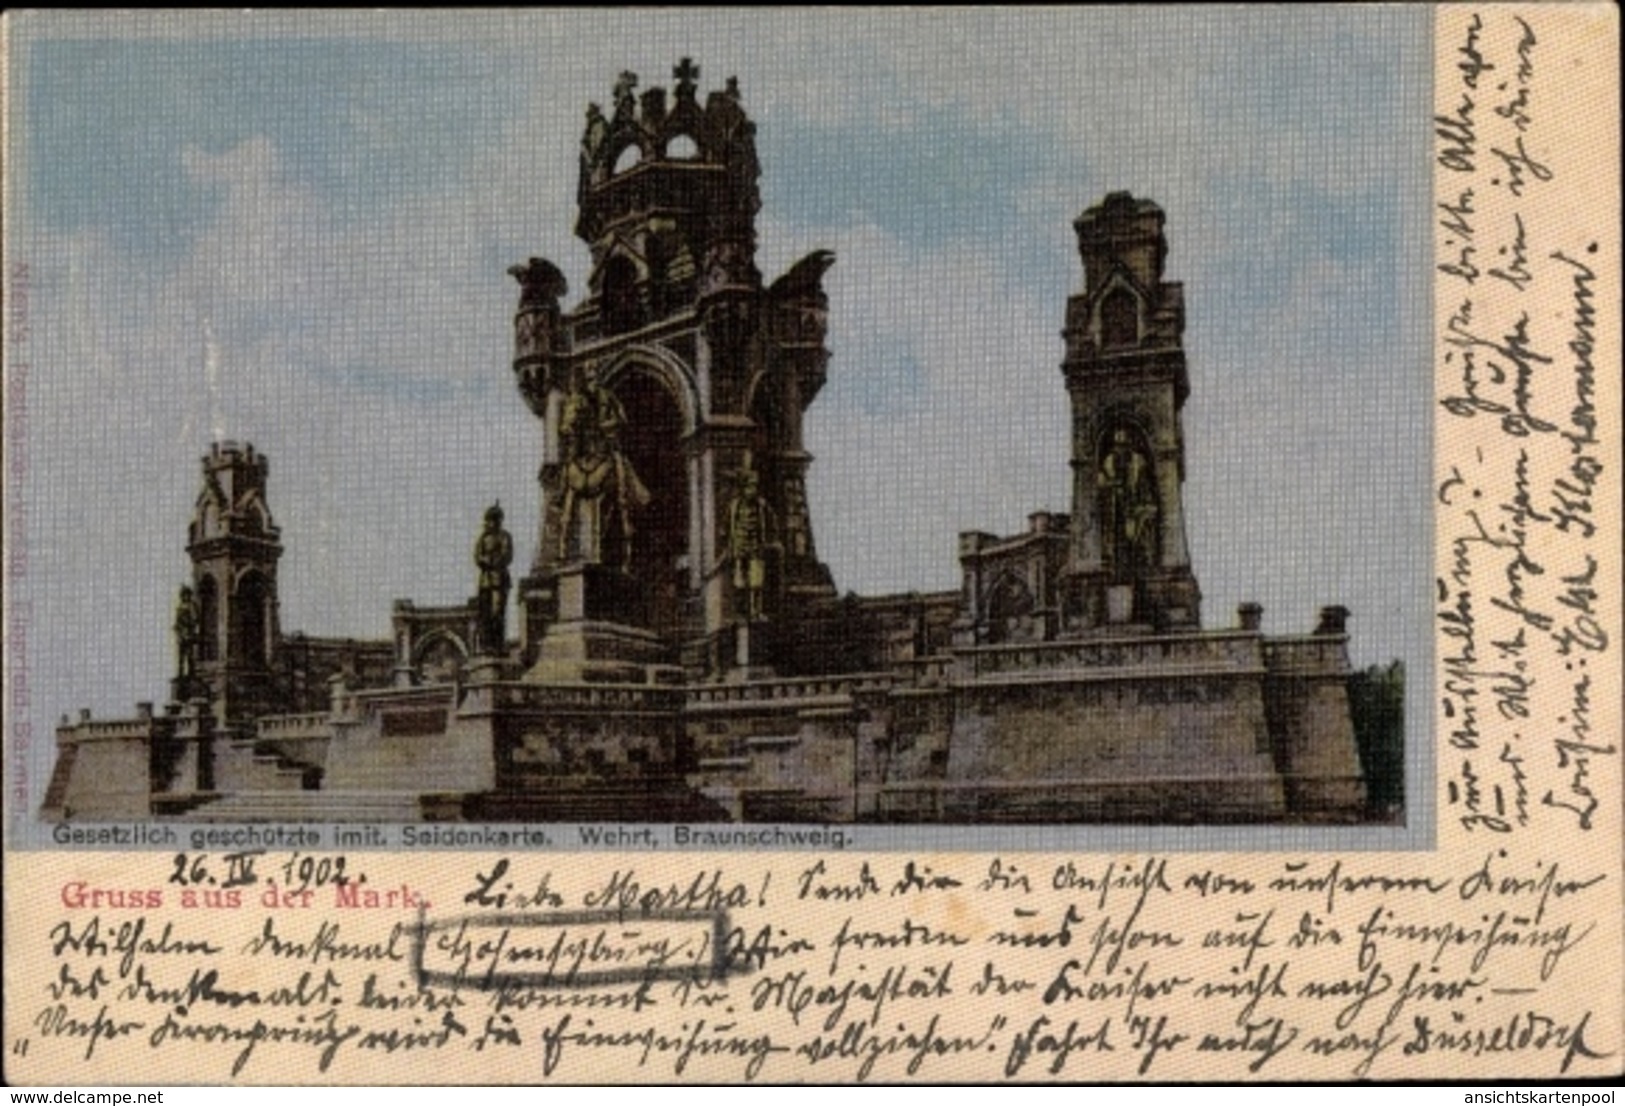 Niem's Postkarten-Verlag, Lipprreid-Barmen.
Gesetzlich geschützte imit. Seidenkarte. Wehrt, Braunschweig.
26. IV. 1902.
Gruss aus der Mark.
Liebe Martha! Sende dir die Ansicht von unserem Kaiser
Wilhelm denkmal (Hohensyburg.) Wir freuen uns schon auf die Einweihung
des denkmals. Leider kommt Sr. Majestät der Kaiser nicht nach hier. —
„Unser Kronprinz wird die Einweihung vollziehen." Fahrt Ihr auch nach Düsseldorf
zur Ausstellung? — Grüße bitte Alle von
uns. Mit herzlichen Grüßen bin ich deine
Cousine: Klostermann.
delcampe.net
ansichtskartenpool